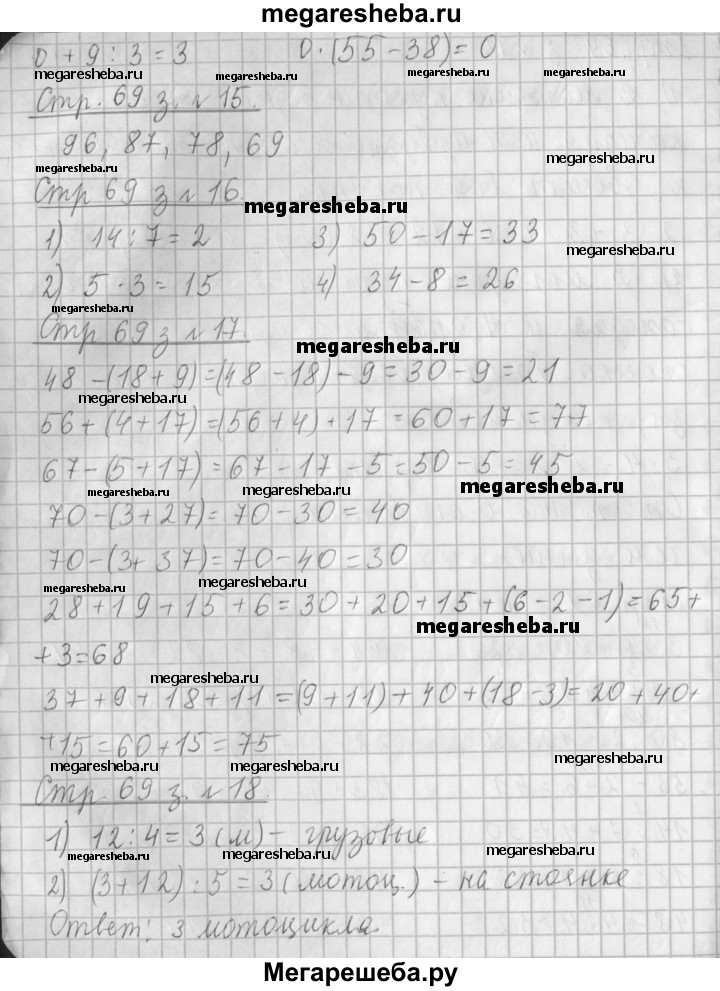 megaresheba.ru
0 + 9 : 3 = 3    0 · (55 - 38) = 0
megaresheba.ru megaresheba.ru megaresheba.ru megaresheba.ru
Стр. 69 з. № 15.
96, 87, 78, 69
megaresheba.ru
megaresheba.ru
Стр 69 з № 16.
megaresheba.ru
1) 14 : 7 = 2    3) 50 - 17 = 33
megaresheba.ru
2) 5 · 3 = 15    4) 34 - 8 = 26
megaresheba.ru
Стр 69 з № 17.
megaresheba.ru
48 - (18 + 9) = (48 - 18) - 9 = 30 - 9 = 21
megaresheba.ru megaresheba.ru
56 + (4 + 17) = (56 + 4) + 17 = 60 + 17 = 77
67 - (5 + 17) = 67 - 17 - 5 = 50 - 5 = 45
megaresheba.ru megaresheba.ru megaresheba.ru
70 - (3 + 27) = 70 - 30 = 40
70 - (3 + 37) = 70 - 40 = 30
megaresheba.ru megaresheba.ru megaresheba.ru
28 + 19 + 15 + 6 = 30 + 20 + 15 + (6 - 2 - 1) = 65 +
megaresheba.ru
+ 3 = 68
megaresheba.ru megaresheba.ru
37 + 9 + 18 + 11 = (9 + 11) + 40 + (18 - 3) = 20 + 40 +
+ 15 = 60 + 15 = 75
megaresheba.ru megaresheba.ru megaresheba.ru
Стр. 69 з. № 18.
1) 12 : 4 = 3 (м) - грузовые
megaresheba.ru megaresheba.ru megaresheba.ru
2) (3 + 12) : 5 = 3 (мотоц.) - на стоянке
Ответ: 3 мотоцикла.
Мегарешеба.ру